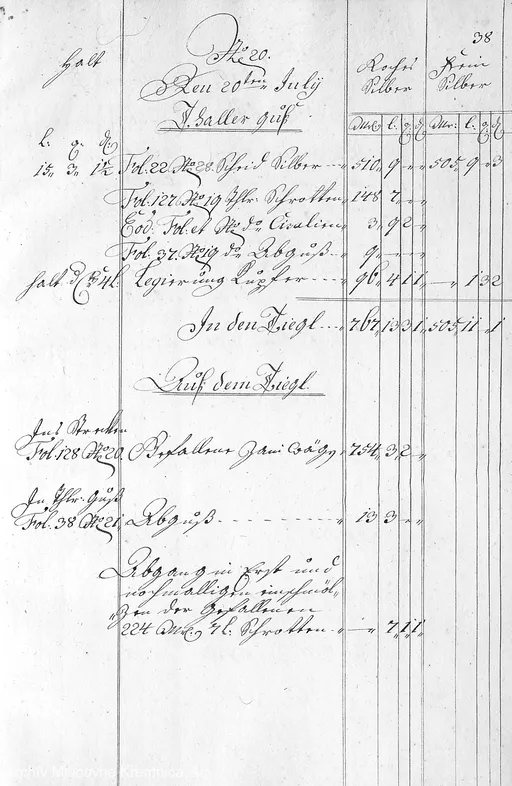 38
No 20.
Halt
Den 20ten July
Roches Silber
Fein Silber
Thaller guß
l: q: d:
Mr: l: q: d: Mr: l: q: d:
15 „ 3 „ 1½ Fol: 22 No 28. Scheid Silber 510 „ 9 „ „ 505 „ 9 „ 3
Fol: 127 No 19 Thlr: Schrotten 148 7 „ „
Eod: Fol: et No do Cisalien 3 „ 9 2 „
Fol: 37. No 19 do Abguß 9 „ „ „
halt d 4 l. Legierung Kupfer 96 „ 4 1 1 „ 1 3 2
In den Tiegl 767 „ 13 3 1 „ 505 „ 11 „ 1
Auß dem Tiegl.
Ins Strecken
Fol 128 No 20. Gefallene Zain wäg 754 „ 3 „ 2 „
In Thlr: Guß
Fol: 38 No 21. Abguß 13 3 „ „
Abgang in Erst und
nochmalligen einschmöl„
„zen der Gefallenen
224 Mr: 7 l: Schrotten „ „ 7 „ 1 1 „
Archív Mincovne Kremnica